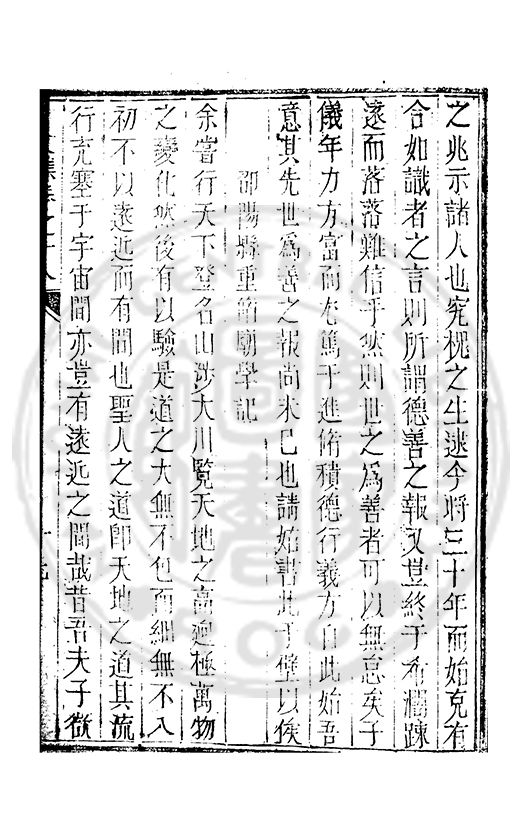 之兆示諸人也究槐之生逮今將三十年而始克有
合如識者之言則所謂德善之報又豈終于希濶踈
遠而落落難信乎然則世之爲善者可以無怠矣子
儀年力方富而尤篤于進脩積德行義方自此始吾
意其先世爲善之報尚未已也請始書此于壁以俟
郃陽縣重脩廟學記
余嘗行天下登名山涉大川覽天地之高逈極萬物
之變化然後有以驗是道之大無不包而細無不入
初不以遠近而有間也聖人之道即天地之道其流
行充塞于宇宙間亦豈有遠近之間哉昔吾夫子嘆
文集卷之十八